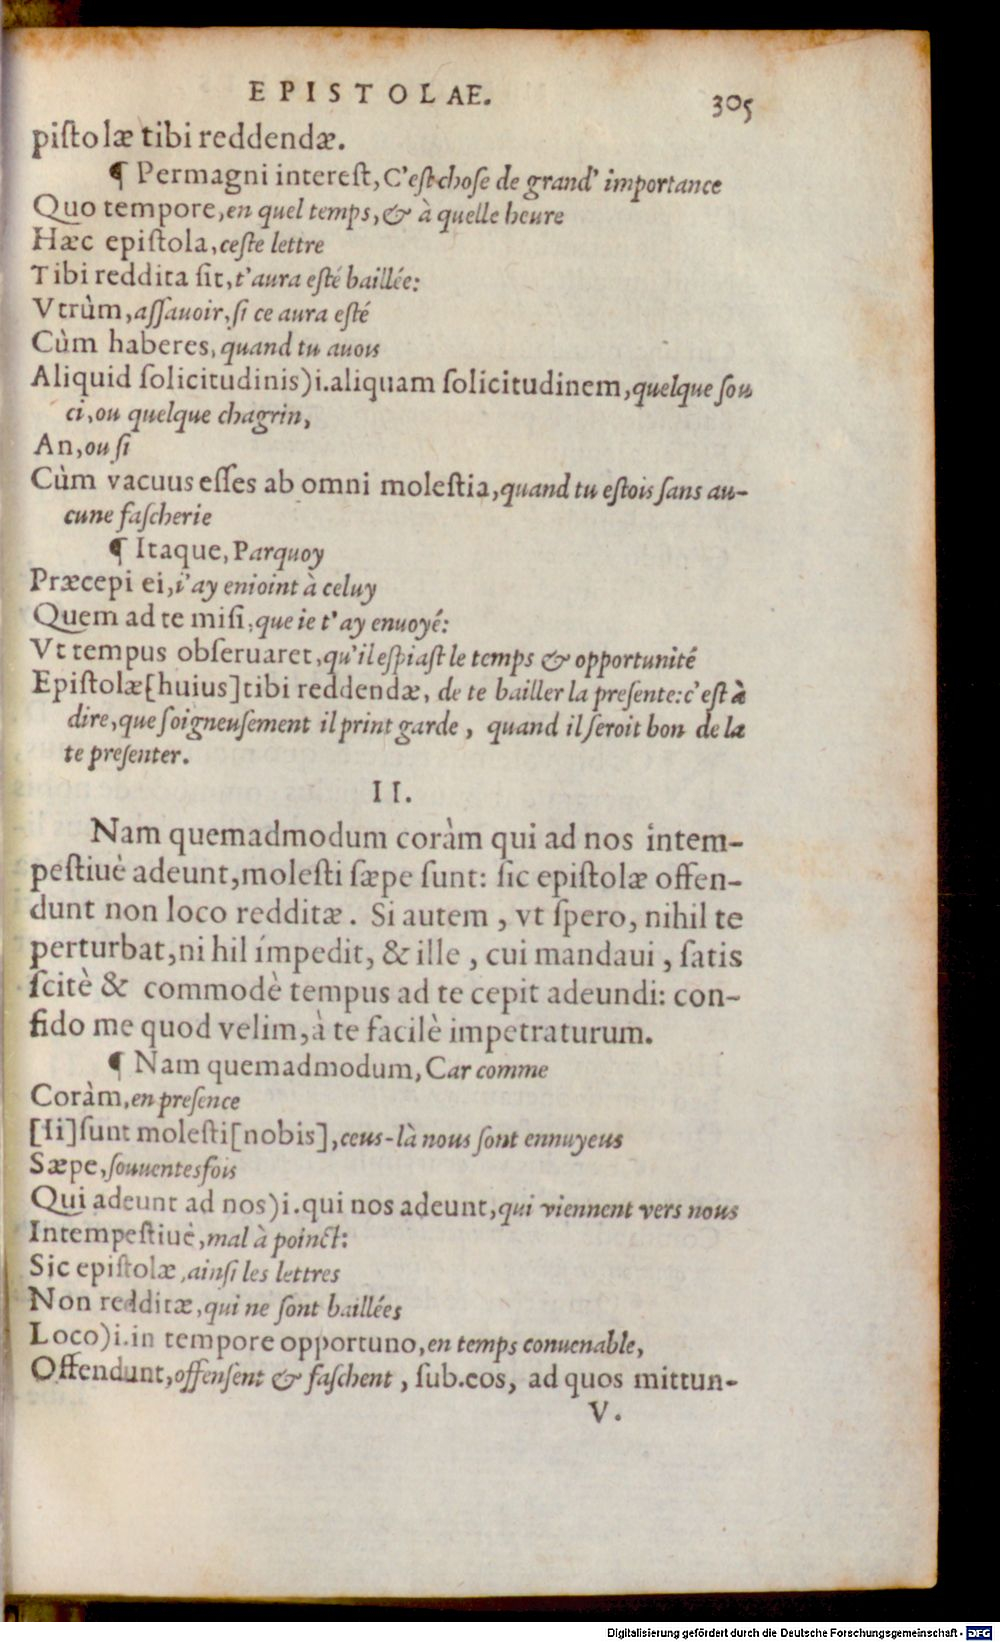 EPISTOLAE. 305
piſtolæ tibi reddendæ.
¶ Permagni intereſt, C'eſt choſe de grand' importance
Quo tempore, en quel temps, & à quelle heure
Hæc epiſtola, ceſte lettre
Tibi reddita ſit, t'aura eſté baillée:
Vtrùm, aſſauoir, ſi ce aura eſté
Cùm haberes, quand tu auois
Aliquid ſolicitudinis)i.aliquam ſolicitudinem, quelque ſou
ci, ou quelque chagrin,
An, ou ſi
Cùm vacuus eſſes ab omni moleſtia, quand tu eſtois ſans au-
cune faſcherie
¶ Itaque, Parquoy
Præcepi ei, i'ay enioint à celuy
Quem ad te miſi, que ie t'ay enuoyé:
Vt tempus obſeruaret, qu'il eſpiaſt le temps & opportunité
Epiſtolæ[huius]tibi reddendæ, de te bailler la preſente: c'eſt à
dire, que ſoigneuſement il print garde, quand il ſeroit bon de la
te preſenter.
II.
Nam quemadmodum coràm qui ad nos intem-
peſtiuè adeunt, moleſti ſæpe ſunt: ſic epiſtolæ offen-
dunt non loco redditæ. Si autem, vt ſpero, nihil te
perturbat, ni hil impedit, & ille, cui mandaui, ſatis
ſcitè & commodè tempus ad te cepit adeundi: con-
fido me quod velim, à te facilè impetraturum.
¶ Nam quemadmodum, Car comme
Coràm, en preſence
[Ii]ſunt moleſti[nobis], ceus-là nous ſont ennuyeus
Sæpe, ſouuentesfois
Qui adeunt ad nos)i.qui nos adeunt, qui viennent vers nous
Intempeſtiuè, mal à poinct:
Sic epiſtolæ, ainſi les lettres
Non redditæ, qui ne ſont baillées
Loco)i.in tempore opportuno, en temps conuenable,
Offendunt, offenſent & faſchent, ſub.eos, ad quos mittun-
V.
Digitalisierung gefördert durch die Deutsche Forschungsgemeinschaft - DFG